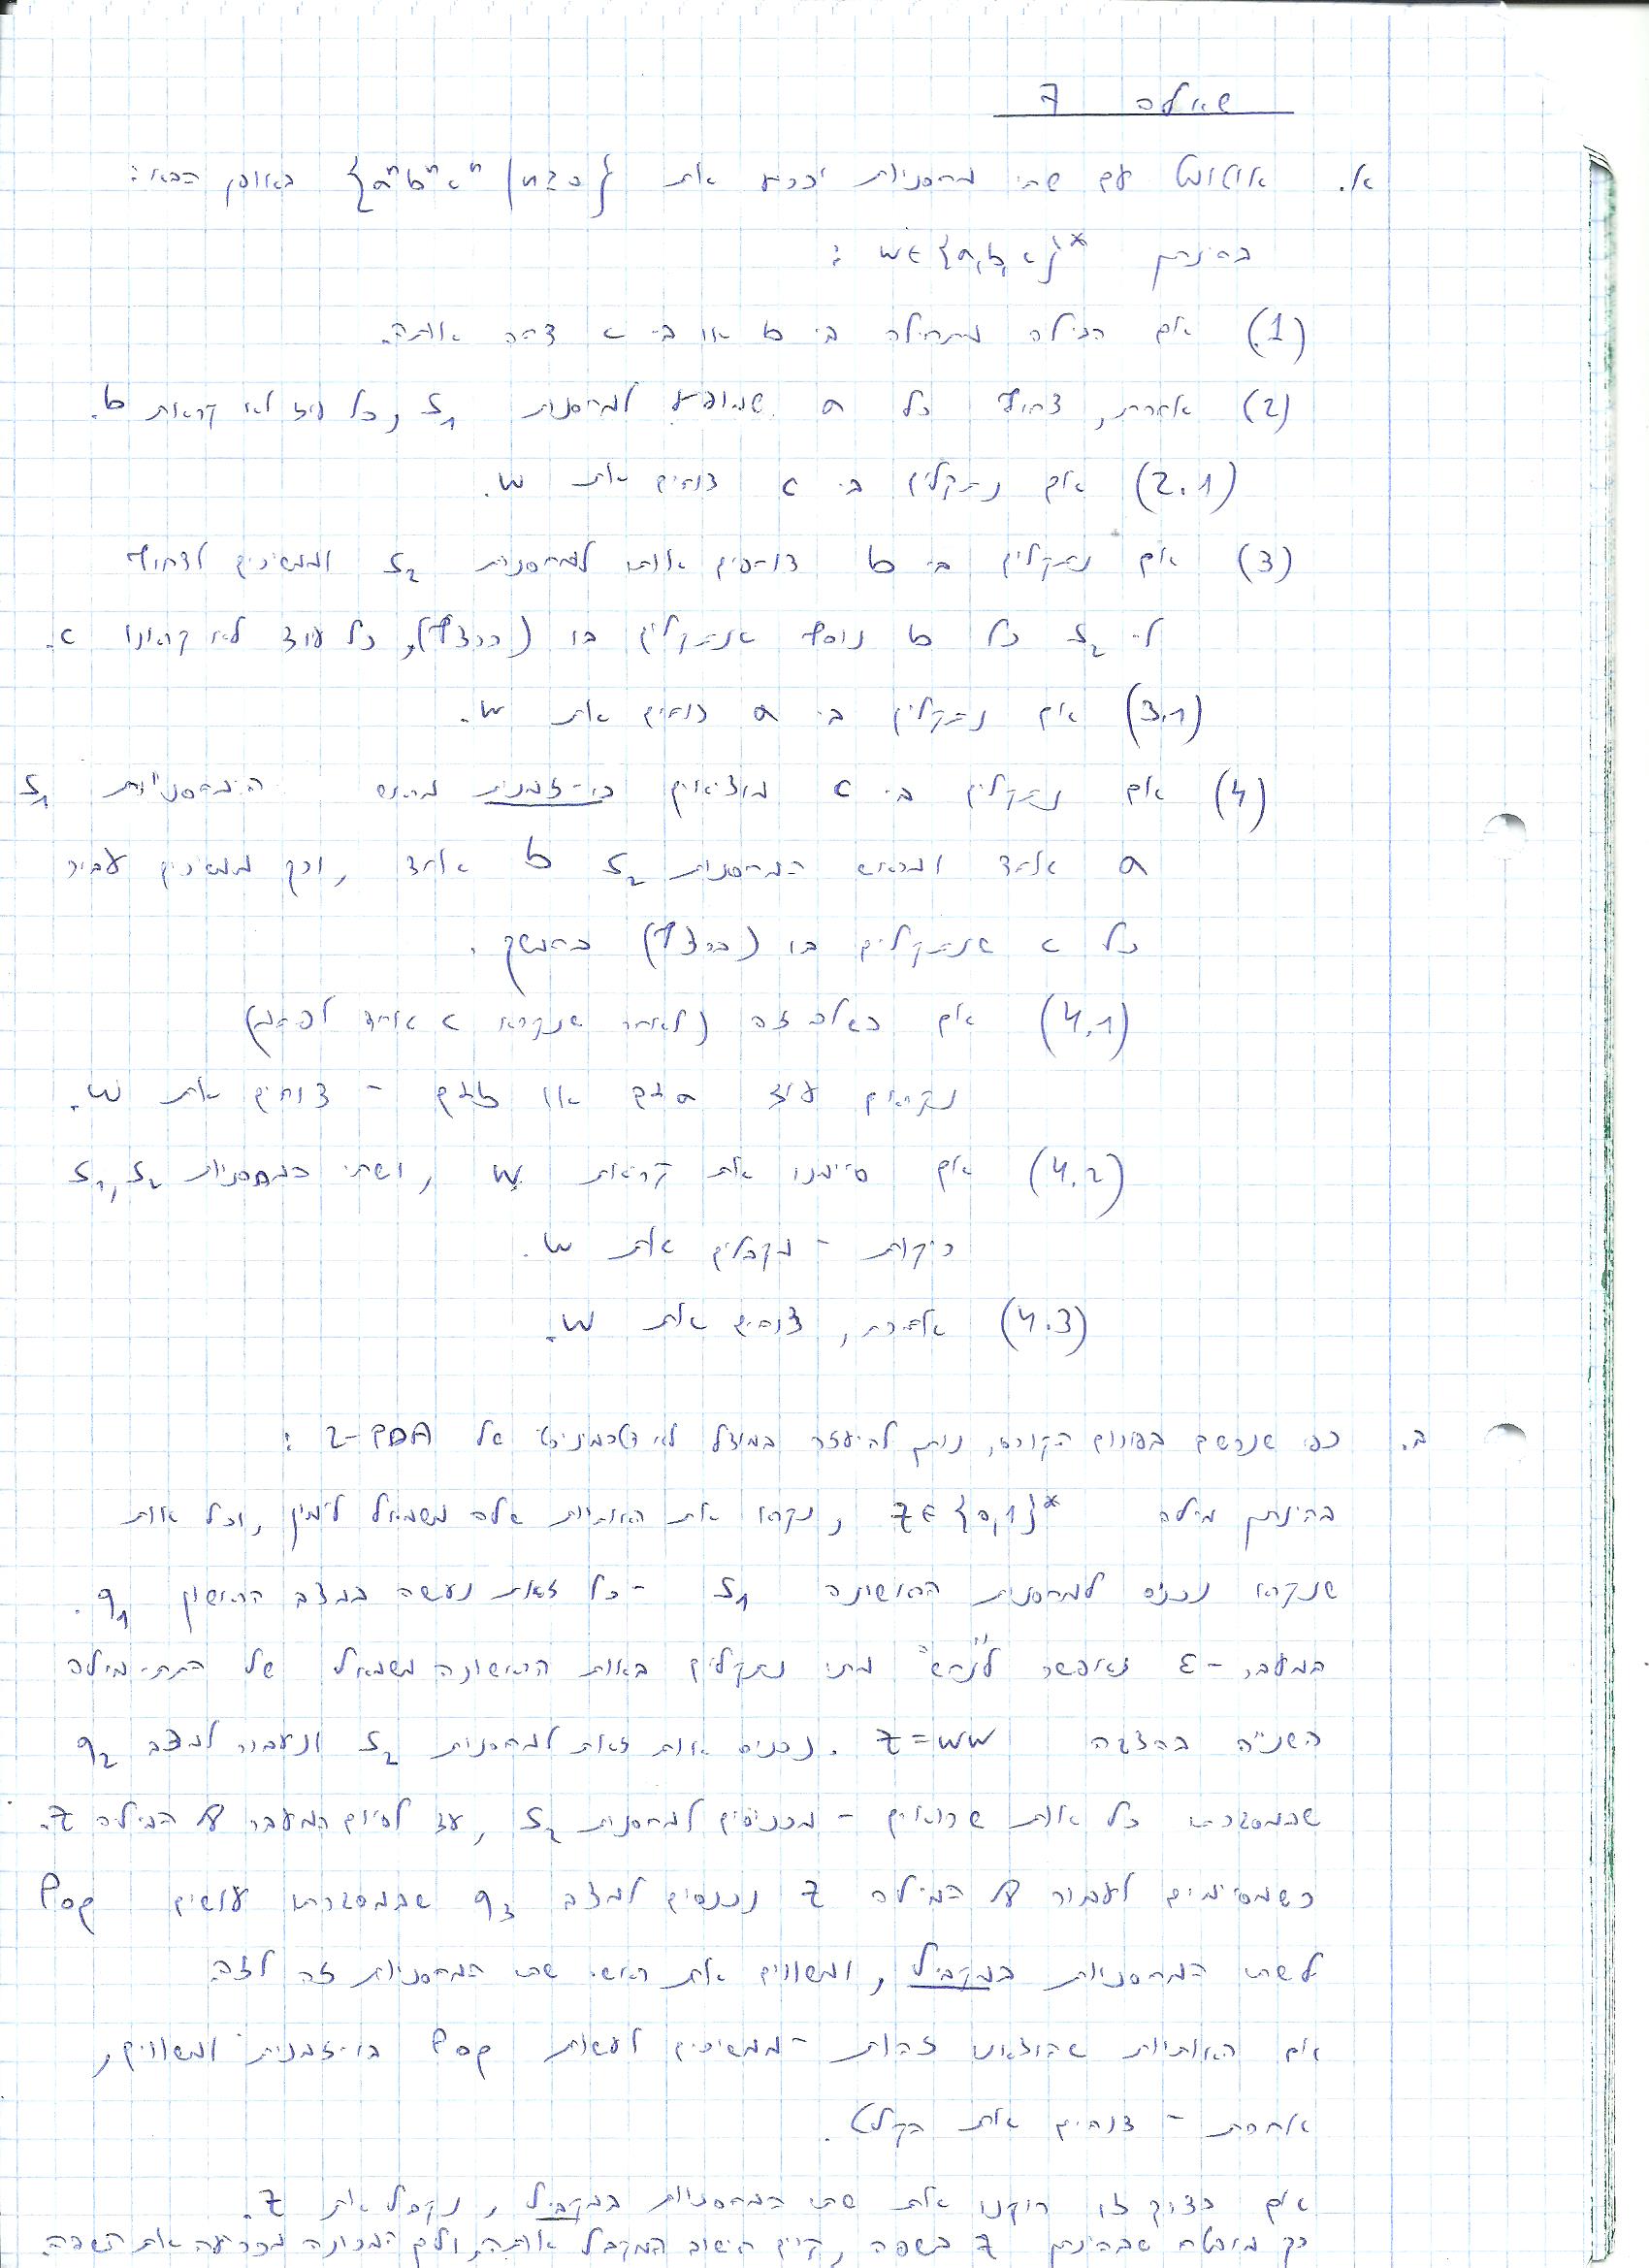 שאלה 7
א. אוטומט עם שתי מחסניות יכריע את {aⁿbⁿcⁿ | n≥0} באופן הבא:
בהינתן w∈{a,b,c}* :
(1) אם המילה מתחילה ב- b או ב- c דחה אותה.
(2) אחרת, דחוף כל a שמופיע למחסנית S₁, כל עוד לא קראת b.
(2.1) אם נתקלים ב- c דוחים את w.
(3) אם נתקלים ב- b דוחפים אותו למחסנית S₂ וממשיכים לדחוף
ל- S₂ כל b נוסף שנתקלים בו (ברצף), כל עוד לא קראנו c.
(3.1) אם נתקלים ב- a דוחים את w.
(4) אם נתקלים ב- c מוציאים בו-זמנית מראש המחסנית S₁
a אחד ומראש המחסנית S₂ b אחד, וכך ממשיכים עבור
כל c שנתקלים בו (ברצף) בהמשך.
(4.1) אם בשלב זה (לאחר שנקרא c אחד לפחות)
נקראים עוד a-ים או b-ים - דוחים את w.
(4.2) אם סיימנו את קריאת w, ושתי המחסניות S₁,S₂
ריקות - מקבלים את w.
(4.3) אחרת, דוחים את w.
ב. כפי שנרשם בפורום הקורס, ניתן להיעזר במודל לא דטרמיניסטי של 2-PDA :
בהינתן מילה z∈{0,1}*, נקרא את האותיות שלה משמאל לימין, וכל אות
שנקרא נכניס למחסנית הראשונה S₁ - כל זאת נעשה במצב הראשון q₁.
במעבר-ε נאפשר "לנחש" מתי נתקלים באות הראשונה משמאל של התת-מילה
השנייה בהצגה z=ww. נכניס אות זאת למחסנית S₂ ונעבור למצב q₂
שבמסגרתו כל אות שרואים - מכניסים למחסנית S₂, עד לסיום המעבר על המילה z.
כשמסיימים לעבור על המילה z נכנסים למצב q₃ שבמסגרתו עושים Pop
לשתי המחסניות במקביל, ומשווים את ראשי שתי המחסניות זה לזה.
אם האותיות שהוצאנו זהות - ממשיכים לעשות Pop בו-זמנית ומשווים,
אחרת - דוחים את הקלט.
אם בצורה זו רוקנו את שתי המחסניות במקביל, נקבל את z.
כך מובטח שבהינתן z בשפה, קיים חישוב המקבל אותה, ולכן המכונה מכריעה את השפה.